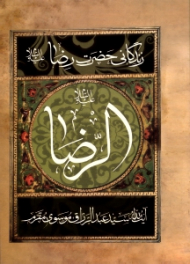 زندگانی حضرت رضا علیه السلام
علیه السلام
الرضا
آیة الله سید عبدالرزاق موسوی مقرم